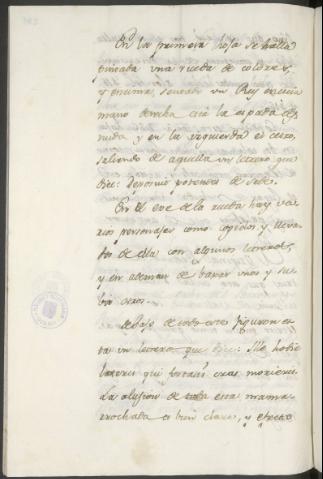 En la primera hoja se halla
pintada una rueda de colores,
y encima sentado un Rey en cuia
mano derecha está la espada des
nuda y en la izquierda el cetro,
saliendo de aquella un letrero que
dice: deposuit potentes de sede.
En el eve de la rueda hay va
rios personajes como cogidos y lleva
dos de ella con algunos letreros,
y en ademan de baxar unos y su
bir otros.
debajo de todo este figuron es
ta un letrero que dice: Me hodie
la alusion de toda esta mama
rrachada es bien clara, y